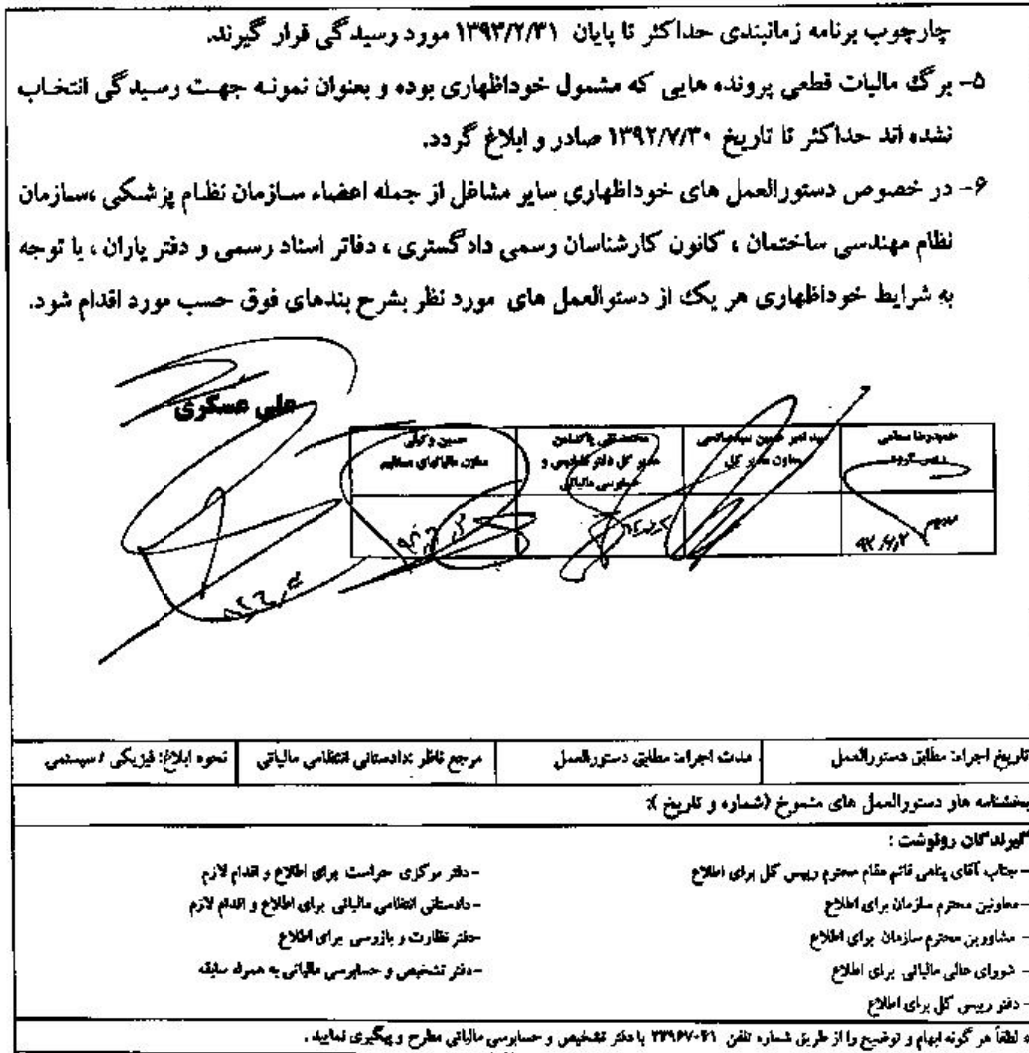 چارچوب برنامه زمانبندی حداکثر تا پایان ۱۳۹۳/۲/۳۱ مورد رسیدگی قرار گیرند.
۵- برگ مالیات قطعی پرونده هایی که مشمول خوداظهاری بوده و بعنوان نمونه جهت رسیدگی انتخاب
نشده اند حداکثر تا تاریخ ۱۳۹۲/۷/۳۰ صادر و ابلاغ گردد.
۶- در خصوص دستورالعمل های خوداظهاری سایر مشاغل از جمله اعضاء سازمان نظام پزشکی ،سازمان
نظام مهندسی ساختمان ، کانون کارشناسان رسمی دادگستری ، دفاتر اسناد رسمی و دفتر یاران ، با توجه
به شرایط خوداظهاری هر یک از دستوالعمل های مورد نظر بشرح بندهای فوق حسب مورد اقدام شود.
علی عسکری
حسین وکیلی
معاون مالیاتهای مستقیم
محمدتقی پاکدامن
مدیر کل دفتر تشخیص و
حسابرسی مالیاتی
سید امیر حسین
معاون مدیر کل
حمیدرضا
تاریخ اجراء: مطابق دستورالعمل
مدت اجراء: مطابق دستورالعمل
مرجع ناظر :دادستانی انتظامی مالیاتی
نحوه ابلاغ: فیزیکی / سیستمی
بخشنامه هاو دستورالعمل های منسوخ (شماره و تاریخ ):
گیرندگان رونوشت :
- جناب آقای پناهی قائم مقام محترم رییس کل برای اطلاع
- معاونین محترم سازمان برای اطلاع
- مشاورین محترم سازمان برای اطلاع
- شورای عالی مالیاتی برای اطلاع
- دفتر رییس کل برای اطلاع
- دفتر مرکزی حراست برای اطلاع و اقدام لازم
- دادستانی انتظامی مالیاتی برای اطلاع و اقدام لازم
- دفتر نظارت و بازرسی برای اطلاع
- دفتر تشخیص و حسابرسی مالیاتی به همراه سابقه
لطفاً هر گونه ابهام و توضیح را از طریق شماره تلفن با دفتر تشخیص و حسابرسی مالیاتی مطرح و پیگیری نمایید .